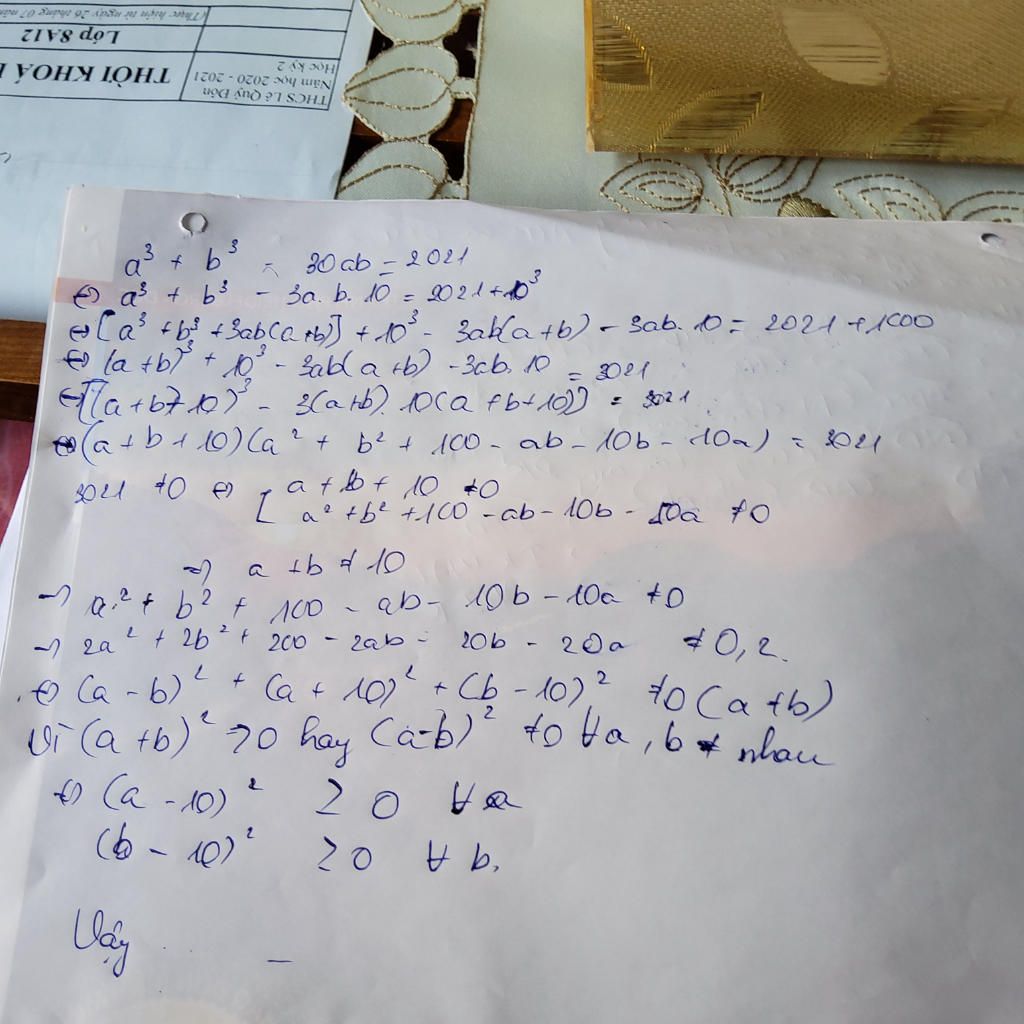 (Thực hiện từ ngày 26 tháng 07 năm
Lớp 8A12
THỜI KHOÁ
Học kỳ 2
Năm học 2020 - 2021
THCS Lê Quý Đôn
a³ + b³ - 30ab = 2021
⇔ a³ + b³ - 3a.b.10 = 2021+10³
⇔ [a³ + b³ + 3ab(a+b)] + 10³ - 3ab(a+b) - 3ab.10 = 2021 + 1000
⇔ (a+b)³ + 10³ - 3ab(a+b) - 3ab.10 = 3021
⇔ [(a+b+10)³ - 3(a+b).10(a+b+10)] = 3021
⇔ (a+b+10)(a² + b² + 100 - ab - 10b - 10a) = 3021
3021 ≠0 ⇔ [ a + b + 10 ≠0
a² + b² + 100 - ab - 10b - 10a ≠0
⇒ a + b ≠ 10
⇒ a² + b² + 100 - ab - 10b - 10a ≠0
⇒ 2a² + 2b² + 200 - 2ab - 20b - 20a ≠ 0,2.
⇔ (a - b)² + (a + 10)² + (b - 10)² ≠0 (a+b)
Vì (a+b)² >0 hay (a-b)² ≠0 ∀a, b ≠ nhau
⇔ (a - 10)² ≥ 0 ∀ a
(b - 10)² ≥ 0 ∀ b.
Vậy